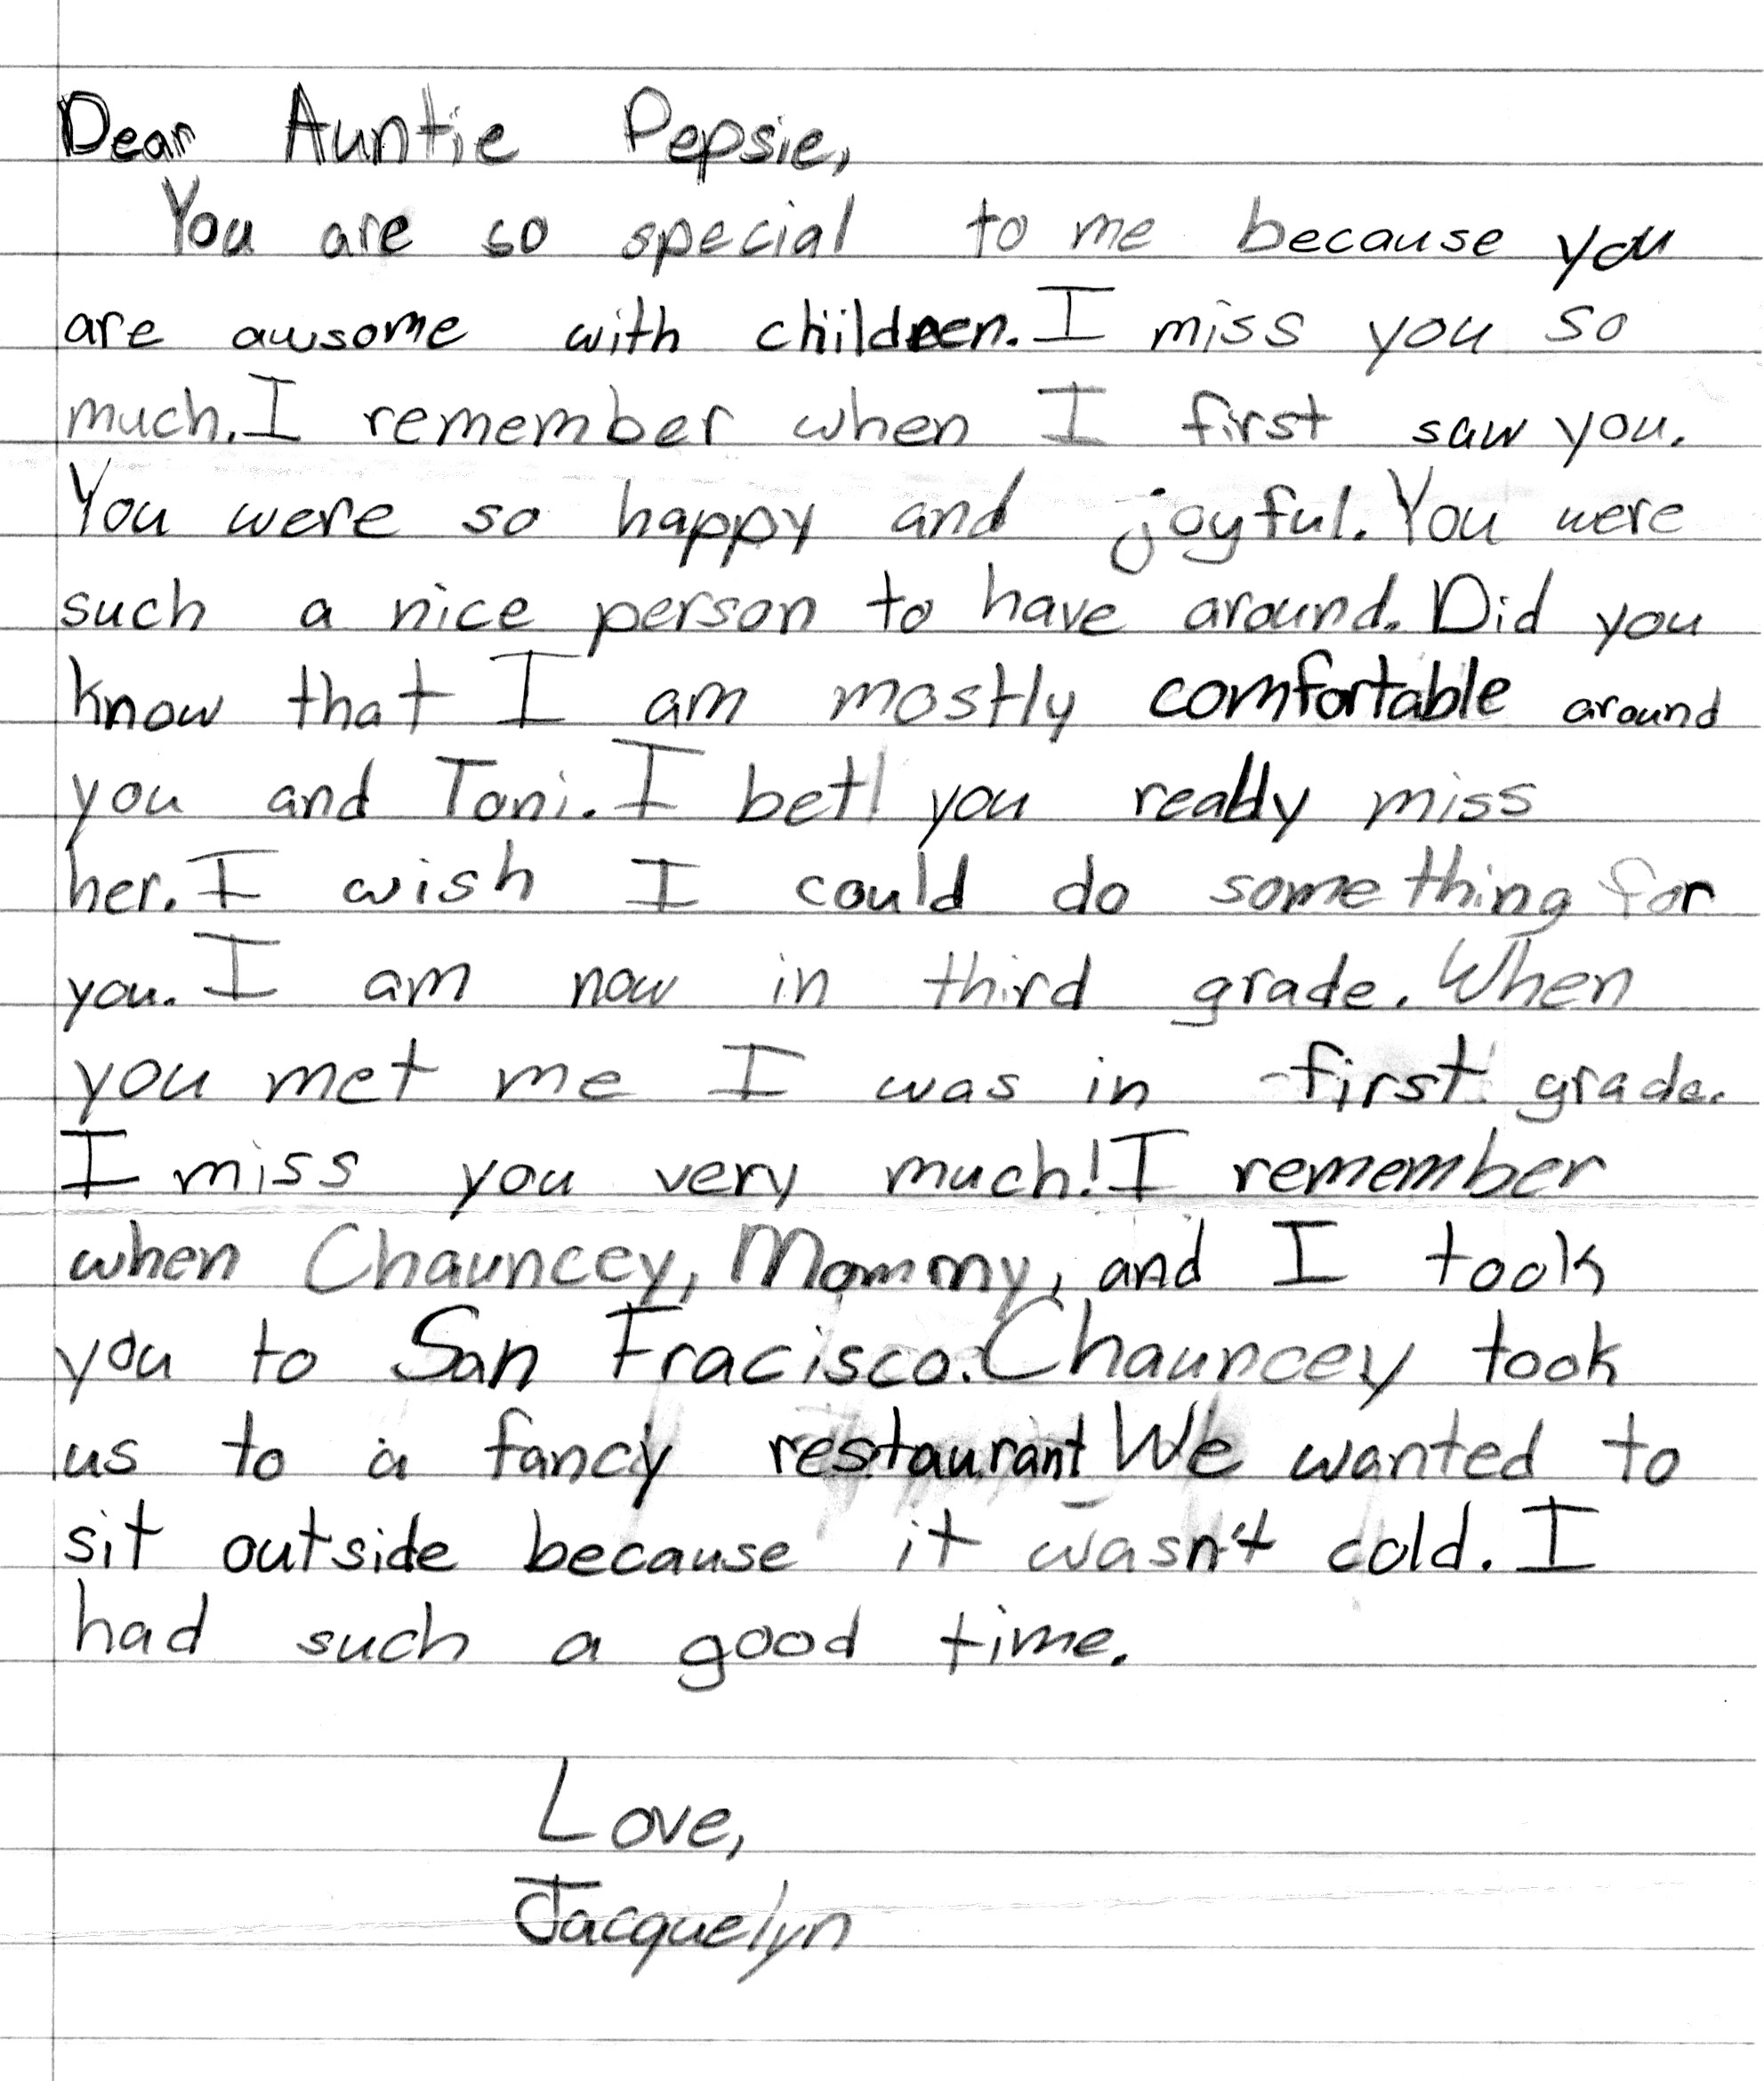 Dear Auntie Pepsie,
You are so special to me because you
are awsome with children. I miss you so
much. I remember when I first saw you.
You were so happy and joyful. You were
such a nice person to have around. Did you
know that I am mostly comfortable around
you and Toni. I bet you really miss
her. I wish I could do something for
you. I am now in third grade. When
you met me I was in first grade.
I miss you very much! I remember
when Chauncey, Mommy, and I took
you to San Fracisco. Chauncey took
us to a fancy restaurant We wanted to
sit outside because it wasn't cold. I
had such a good time.
Love,
Jacquelyn